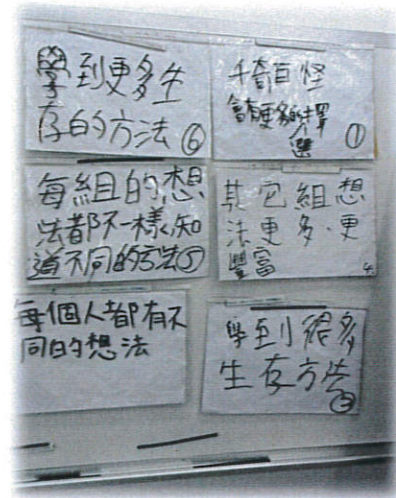 學到更多生
存的方法⑥
千奇百怪
會有更多的擇
選
①
每組的想
法都不一樣,知
道不同的方法⑤
其它組想
法更多,更
豐富
4
每個人都有不
同的想法
學到很多
生存方法